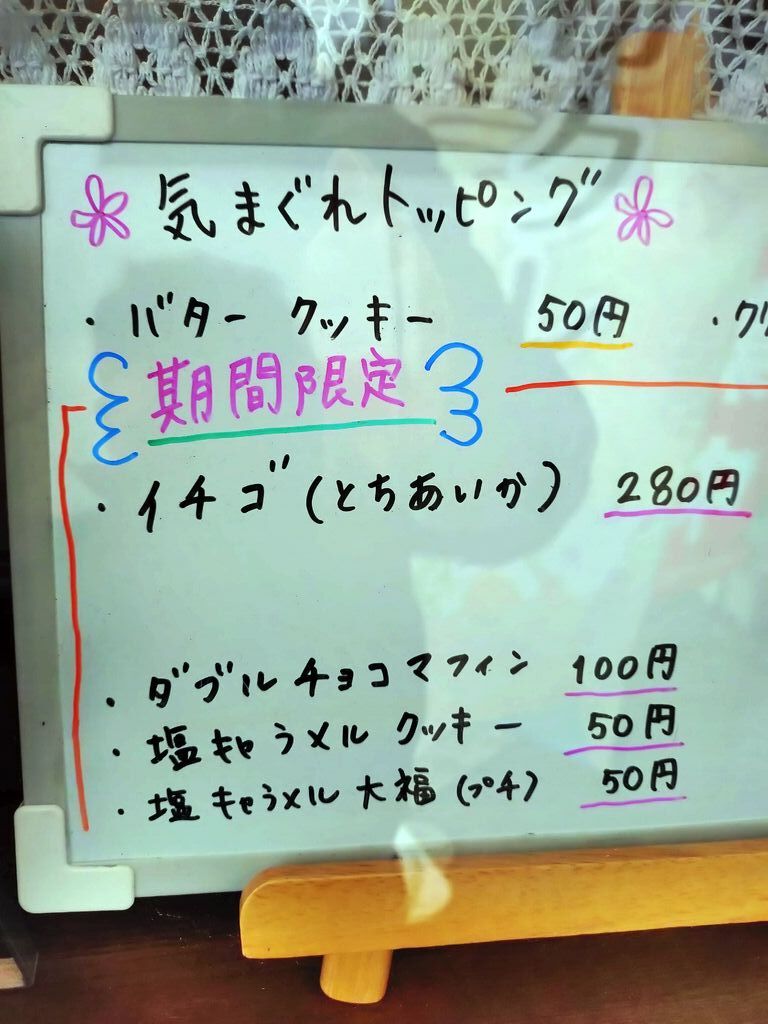 気まぐれトッピング
・バター クッキー 50円 ・ク
期間限定
・イチゴ(とちあいか) 280円
・ダブルチョコマフィン 100円
・塩キャラメル クッキー 50円
・塩キャラメル大福(プチ) 50円